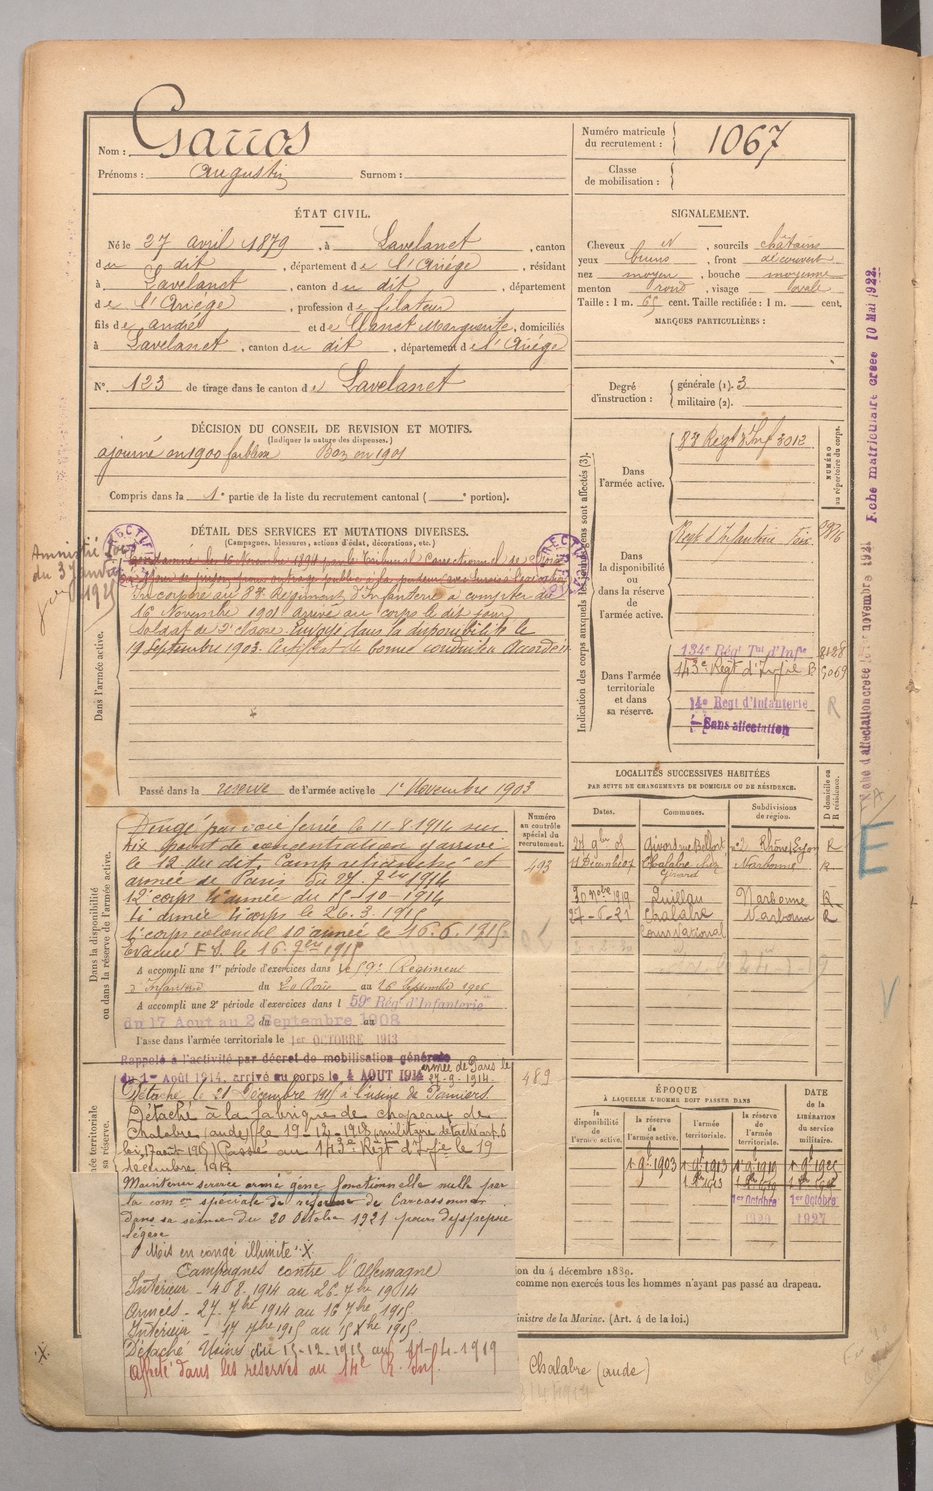 Nom : Garros
Prénoms : Augustin Surnom :
Numéro matricule du recrutement : 1067
Classe de mobilisation :
ÉTAT CIVIL.
Né le 27 avril 1879, à Lavelanet, canton
du dit, département de l'Ariège, résidant
à Lavelanet, canton du dit, département
de l'Ariège, profession de filateur
fils de andré et de Clanet Marguerite, domiciliés
à Lavelanet, canton du dit, département de l'Ariège
N° 123 de tirage dans le canton de Lavelanet
SIGNALEMENT.
Cheveux N, sourcils châtains
yeux bruns, front découvert
nez moyen, bouche moyenne
menton rond, visage ovale
Taille : 1 m. 65 cent. Taille rectifiée : 1 m. cent.
MARQUES PARTICULIÈRES :
Degré d'instruction : générale (1). 3
militaire (2).
DÉCISION DU CONSEIL DE REVISION ET MOTIFS.
(Indiquer la nature des dispenses.)
ajourné en 1900 faiblesse Bon en 1901
Compris dans la 1e partie de la liste du recrutement cantonal ( e portion).
DÉTAIL DES SERVICES ET MUTATIONS DIVERSES.
(Campagnes, blessures, actions d'éclat, décorations, etc.)
Amnistié Loi
du 3 Janvier
1925
Dans l'armée active.
Incorporé au 83e Régiment d'Infanterie à compter du
16 Novembre 1901 arrivé au corps le dit jour
Soldat de 2e classe. Envoyé dans la disponibilité le
19 Septembre 1903. Certificat de bonne conduite Accordé
Passé dans la réserve de l'armée active le 1er Novembre 1903
Indication des corps auxquels les jeunes gens sont affectés (3).
NUMÉRO au répertoire du corps.
Dans l'armée active.
83 Regt d'Inf 3012
Dans la disponibilité ou dans la réserve de l'armée active.
Regt d'Infanterie
Dans l'armée territoriale et dans sa réserve.
134e Régt Tal d'Infie 8128
143e Regt d'Infie 5069
14e Regt d'Infanterie R
Sans affectation
Fiche matriculaire créée 10 Mai 1922.
novembre 1921
LOCALITÉS SUCCESSIVES HABITÉES
PAR SUITE DE CHANGEMENTS DE DOMICILE OU DE RÉSIDENCE.
Dates. Communes. Subdivisions de région. D domicile ou R résidence.
Givors rue Belfort n°2 Rhône Lyon R
Chalabre Narbonne R
30 nobre 1919 Quillan Narbonne R
27-6-21 Chalabre Narbonne R
Cours National
E
Numéro au contrôle spécial du recrutement.
493
489
Dans la disponibilité ou dans la réserve de l'armée active.
Dirigé par voie ferrée le 11-8-1914 sur
point de concentration y arrive
le 12 du dit. Camp retranché et
armée de Paris du 27. 7bre 1914
12e corps 4e armée du 5-10-1914
4e armée 4 corps le 26.3.1915
1er corps colonial 10 armée le 16.6.1915
Evacué F.S. le 16. 7bre 1915
A accompli une 1re période d'exercices dans le 59e Régiment
d'Infanterie du 20 Août au 16 Septembre 1906
A accompli une 2e période d'exercices dans l 59e Rég d'Infanterie
du 17 Aout au 2 Septembre 1908
Passé dans l'armée territoriale le 1er OCTOBRE 1913
Rappelé à l'activité par décret de mobilisation générale
du 1er Août 1914, arrivé au corps le 4 AOUT 1914
armée de Paris le 27-9-1914
Détaché le 21 Décembre 1915 à l'usine de Pamiers
Détaché à la fabrique de chapeaux de
Chalabre (aude) le 19-12-1918
Passé au 143e Régt d'Infie le 19
décembre 1918
Maintenu service armé gêne fonctionnelle nulle par
la com on spéciale de réforme de Carcassonne
dans sa séance du 20 Octobre 1921 pour dyspepsie
légère
Mis en congé illimité
Campagnes contre l'Allemagne
Intérieur - 4 8. 1914 au 26. 7bre 1914
Armées - 27. 7bre 1914 au 16 7bre 1915
Intérieur - 17 7bre 1915 au 15 Xbre 1915
Détaché Usines du 15-12-1915 au
Affecté dans les réserves au 14e R. Inf.
ÉPOQUE
À LAQUELLE L'HOMME DOIT PASSER DANS
la disponibilité de l'armée active. la réserve de l'armée active. l'armée territoriale. la réserve de l'armée territoriale.
DATE de la LIBÉRATION du service militaire.
1 9bre 1903
1er Octobre 1er Octobre
1927
ion du 4 décembre 1889.
comme non exercés tous les hommes n'ayant pas passé au drapeau.
inistre de la Marine. (Art. 4 de la loi.)
Chalabre (aude)